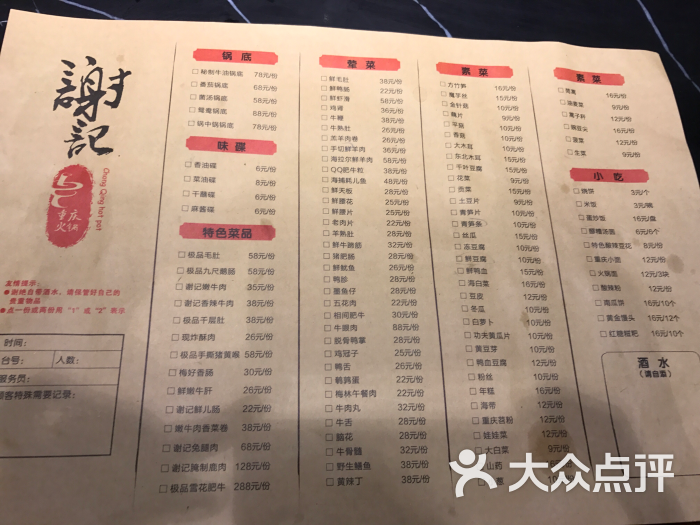 謝記
Chong Qing hot pot
重庆火锅
友情提示：
●谢绝自带酒水，请保管好自己的
贵重物品
●点一份或两份用“1”或“2”表示
时间：
台号： 人数：
服务员：
顾客特殊需要记录：
锅底
□ 秘制牛油锅底 78元/份
□ 番茄锅底 68元/份
□ 菌汤锅底 58元/份
□ 鸳鸯锅底 88元/份
□ 锅中锅锅底 78元/份
味碟
□ 香油碟 6元/份
□ 菜油碟 8元/份
□ 干醮碟 6元/份
□ 麻酱碟 6元/份
特色菜品
□ 极品毛肚 58元/份
□ 极品九尺鹅肠 58元/份
□ 谢记嫩牛肉 58元/份
□ 谢记香辣牛肉 58元/份
□ 极品千层肚 58元/份
□ 现炸酥肉 26元/份
□ 极品手撕猪黄喉 58元/份
□ 梅好香肠 30元/份
□ 鲜嫩牛肝 26元/份
□ 谢记鲜儿肠 22元/份
□ 嫩牛肉香菜卷 30元/份
□ 谢记兔腿肉 68元/份
□ 谢记腌制鹿肉 128元/份
□ 极品雪花肥牛 288元/份
荤菜
□ 鲜毛肚 38元/份
□ 鲜鸭肠 22元/份
□ 鲜虾滑 58元/份
□ 鸡肾 36元/份
□ 牛鞭 38元/份
□ 牛熟肚 26元/份
□ 羔羊肉卷 36元/份
□ 手切鲜羊肉 36元/份
□ 海拉尔鲜羊肉 58元/份
□ QQ肥牛粒 38元/份
□ 海捕耗儿鱼 48元/份
□ 鲜天梯 28元/份
□ 鲜腰花 28元/份
□ 鲜腰片 22元/份
□ 老肉片 22元/份
□ 羊熟肚 28元/份
□ 鲜牛蹄筋 32元/份
□ 猪肥肠 28元/份
□ 鲜鱿鱼 26元/份
□ 鸭郡 26元/份
□ 墨鱼仔 28元/份
□ 五花肉 22元/份
□ 相间肥牛 30元/份
□ 牛眼肉 88元/份
□ 脱骨鸭掌 30元/份
□ 鸡冠子 28元/份
□ 鸭舌 36元/份
□ 鹌鹑蛋 22元/份
□ 梅林午餐肉 22元/份
□ 牛肉丸 32元/份
□ 牛舌 28元/份
□ 脑花 28元/份
□ 牛骨髓 32元/份
□ 野生鳝鱼 38元/份
□ 黄辣丁 38元/份
素菜
□ 方竹笋 16元/份
□ 魔芋丝
□ 金针菇
□ 藕片 9元/份
□ 平菇
□ 香菇
□ 大木耳
□ 东北木耳
□ 千叶豆腐
□ 花菜
□ 贡菜
□ 土豆片 9元/份
□ 青笋片
□ 青笋条
□ 丝瓜
□ 冻豆腐
□ 鲜豆腐
□ 鲜鸭血
□ 海白菜
□ 豆皮
□ 冬瓜
□ 白萝卜
□ 功夫黄瓜片
□ 黄豆芽
□ 鸭血豆腐 12元/份
□ 粉丝 10元/份
□ 年糕 16元/份
□ 海带 12元/份
□ 重庆苕粉 12元/份
□ 娃娃菜 12元/份
□ 大白菜 9元/份
□ 山药
素菜
□ 茼蒿 16元/份
□ 油麦菜
□ 蒿子秆 12元/份
□ 豌豆尖 16元/份
□ 菠菜 12元/份
□ 生菜 9元/份
小吃
□ 烧饼 3元/个
□ 米饭 3元/碗
□ 蛋炒饭 16元/份
□ 醪糟汤圆 6元/6个
□ 特色酸辣豆花 8元/份
□ 重庆小面 12元/份
□ 火锅面 12元/3块
□ 酸辣粉 12元/份
□ 南瓜饼 16元/10个
□ 黄金馒头 16元/10个
□ 红糖糍粑 16元/10个
酒水
（请自选）
大众点评